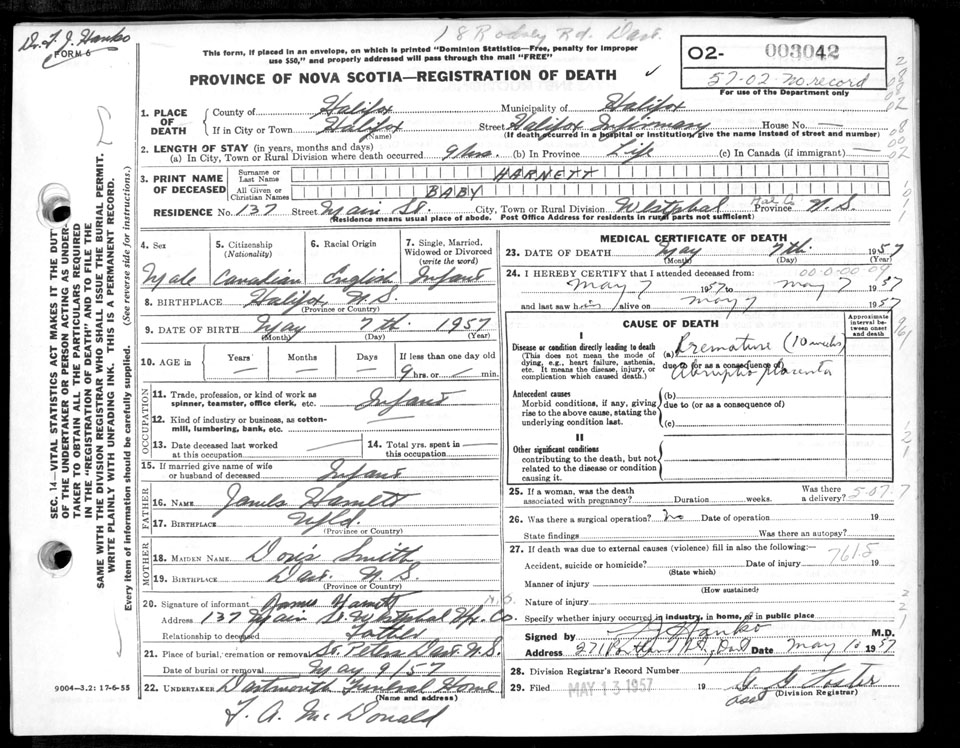 Dr. F. J. Hanko
FORM 6
18 Rodney Rd. Dart.
This form, if placed in an envelope, on which is printed "Dominion Statistics—Free, penalty for improper
use $50," and properly addressed will pass through the mail "FREE"
O2- 003042
57-02 no record
For use of the Department only
PROVINCE OF NOVA SCOTIA—REGISTRATION OF DEATH
1. PLACE OF DEATH
County of Halifax Municipality of Halifax
If in City or Town Halifax Street Halifax Infirmary House No. —
(Name) (If death occurred in a hospital or institution, give the name instead of street and number)
2. LENGTH OF STAY (in years, months and days)
(a) In City, Town or Rural Division where death occurred 9 hrs. (b) In Province Life (c) In Canada (if immigrant) —
3. PRINT NAME OF DECEASED
Surname or Last Name HARNETT
All Given or Christian Names BABY
RESIDENCE No. 137 Street Main St. City, Town or Rural Division Westphal Hal. Co. Province N.S.
Residence means usual place of abode. Post Office Address for residents in rural parts not sufficient)
4. Sex
Male
5. Citizenship (Nationality)
Canadian
6. Racial Origin
English
7. Single, Married, Widowed or Divorced (write the word)
Infant
8. BIRTHPLACE Halifax, N.S.
(Province or Country)
9. DATE OF BIRTH May 7th. 1957
(Month) (Day) (Year)
10. AGE in
Years —
Months —
Days —
If less than one day
9 hrs. or — min.
OCCUPATION
11. Trade, profession, or kind of work as
spinner, teamster, office clerk, etc. Infant
12. Kind of industry or business, as cotton-
mill, lumbering, bank, etc.
13. Date deceased last worked
at this occupation
14. Total yrs. spent in
this occupation
15. If married give name of wife
or husband of deceased Infant
FATHER
16. NAME James Harnett
17. BIRTHPLACE Nfld.
(Province or Country)
MOTHER
18. MAIDEN NAME Doris Smith
19. BIRTHPLACE Dart. N.S.
(Province or Country)
20. Signature of informant James Harnett
Address 137 Main St. Westphal Hfx. Co. N.S.
Relationship to deceased Father
21. Place of burial, cremation or removal St. Peters Dart. N.S.
Date of burial or removal May 9/57
22. UNDERTAKER Dartmouth Funeral Home
(Name and address)
F. A. McDonald
MEDICAL CERTIFICATE OF DEATH
23. DATE OF DEATH May 7th. 1957
(Month) (Day) (Year)
24. I HEREBY CERTIFY that I attended deceased from:
00-0-00 09
May 7 1957 to May 7 1957
and last saw him alive on May 7 1957
CAUSE OF DEATH
Approximate interval between onset and death
I
Disease or condition directly leading to death
(This does not mean the mode of
dying, e.g., heart failure, asthenia,
etc. It means the disease, injury, or
complication which caused death.)
(a) Premature (10 weeks)
due to (or as a consequence of)
Abruptio Placenta
Antecedent causes
Morbid conditions, if any, giving
rise to the above cause, stating the
underlying condition last.
(b)
due to (or as a consequence of)
(c)
II
Other significant conditions
contributing to the death, but not
related to the disease or condition
causing it.
25. If a woman, was the death
associated with pregnancy? Duration weeks. Was there
a delivery? 5-07-7
26. Was there a surgical operation? no Date of operation 19
State findings Was there an autopsy?
27. If death was due to external causes (violence) fill in also the following:—
Accident, suicide or homicide? Date of injury 19
7615
(State which)
Manner of injury
(How sustained)
Nature of injury
Specify whether injury occurred in industry, in home, or in public place
Signed by F J Hanko M.D.
Address 271 Portland St., Dart Date May 10 1957
28. Division Registrar's Record Number
29. Filed MAY 13 1957 19 G. G. Foster
(Division Registrar)
SEC. 14—VITAL STATISTICS ACT MAKES IT THE DUTY
OF THE UNDERTAKER OR PERSON ACTING AS UNDER-
TAKER TO OBTAIN ALL THE PARTICULARS REQUIRED
IN THE "REGISTRATION OF DEATH" AND TO FILE THE
SAME WITH THE DIVISION REGISTRAR WHO SHALL ISSUE THE BURIAL PERMIT.
WRITE PLAINLY WITH UNFADING INK. THIS IS A PERMANENT RECORD.
Every item of information should be carefully supplied. (See reverse side for instructions.)
9004—3.2: 17-6-55